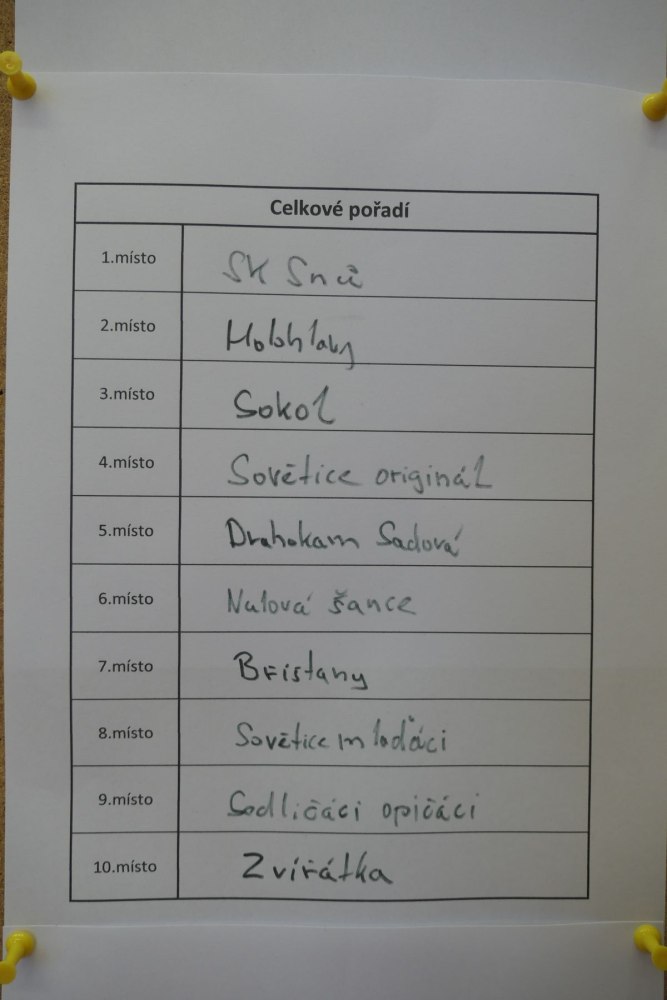 Celkové pořadí
1.místo SK Snů
2.místo Holohlavy
3.místo Sokol
4.místo Sovětice originál
5.místo Drahokam Sadová
6.místo Nulová šance
7.místo Břístany
8.místo Sovětice mlaďáci
9.místo Sedličáci opičáci
10.místo Zvířátka